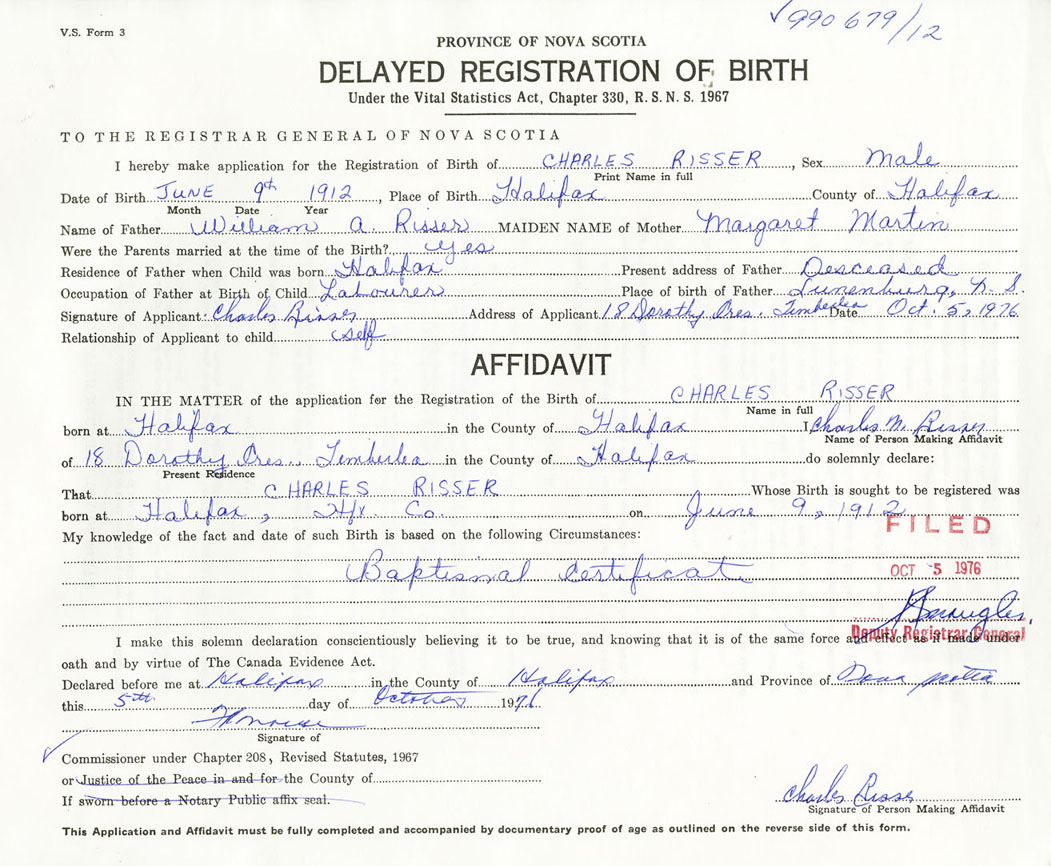 V.S. Form 3
✓990 679/12
PROVINCE OF NOVA SCOTIA
DELAYED REGISTRATION OF BIRTH
Under the Vital Statistics Act, Chapter 330, R. S. N. S. 1967
TO THE REGISTRAR GENERAL OF NOVA SCOTIA
I hereby make application for the Registration of Birth of CHARLES RISSER, Sex Male
Print Name in full
Date of Birth JUNE 9th 1912, Place of Birth Halifax County of Halifax
Month Date Year
Name of Father William A. Risser MAIDEN NAME of Mother Margaret Martin
Were the Parents married at the time of the Birth? Yes
Residence of Father when Child was born Halifax Present address of Father Desceased
Occupation of Father at Birth of Child Labourer Place of birth of Father Lunenburg, N. S.
Signature of Applicant: Charles Risser Address of Applicant 18 Dorothy Cres. Timberlea Date Oct. 5, 1976
Relationship of Applicant to child self
AFFIDAVIT
IN THE MATTER of the application for the Registration of the Birth of CHARLES RISSER
Name in full
born at Halifax in the County of Halifax I, Charles M. Risser
Name of Person Making Affidavit
of 18 Dorothy Cres., Timberlea in the County of Halifax do solemnly declare:
Present Residence
That CHARLES RISSER Whose Birth is sought to be registered was
born at Halifax, Hfx. Co. on June 9, 1912
FILED
My knowledge of the fact and date of such Birth is based on the following Circumstances:
Baptismal Certificate
OCT 5 1976
Deputy Registrar General
I make this solemn declaration conscientiously believing it to be true, and knowing that it is of the same force and effect as if made under
oath and by virtue of The Canada Evidence Act.
Declared before me at Halifax in the County of Halifax and Province of Nova Scotia
this 5th day of October 1976
Signature of
✓ Commissioner under Chapter 208, Revised Statutes, 1967
or Justice of the Peace in and for the County of
If sworn before a Notary Public affix seal.
Charles Risser
Signature of Person Making Affidavit
This Application and Affidavit must be fully completed and accompanied by documentary proof of age as outlined on the reverse side of this form.